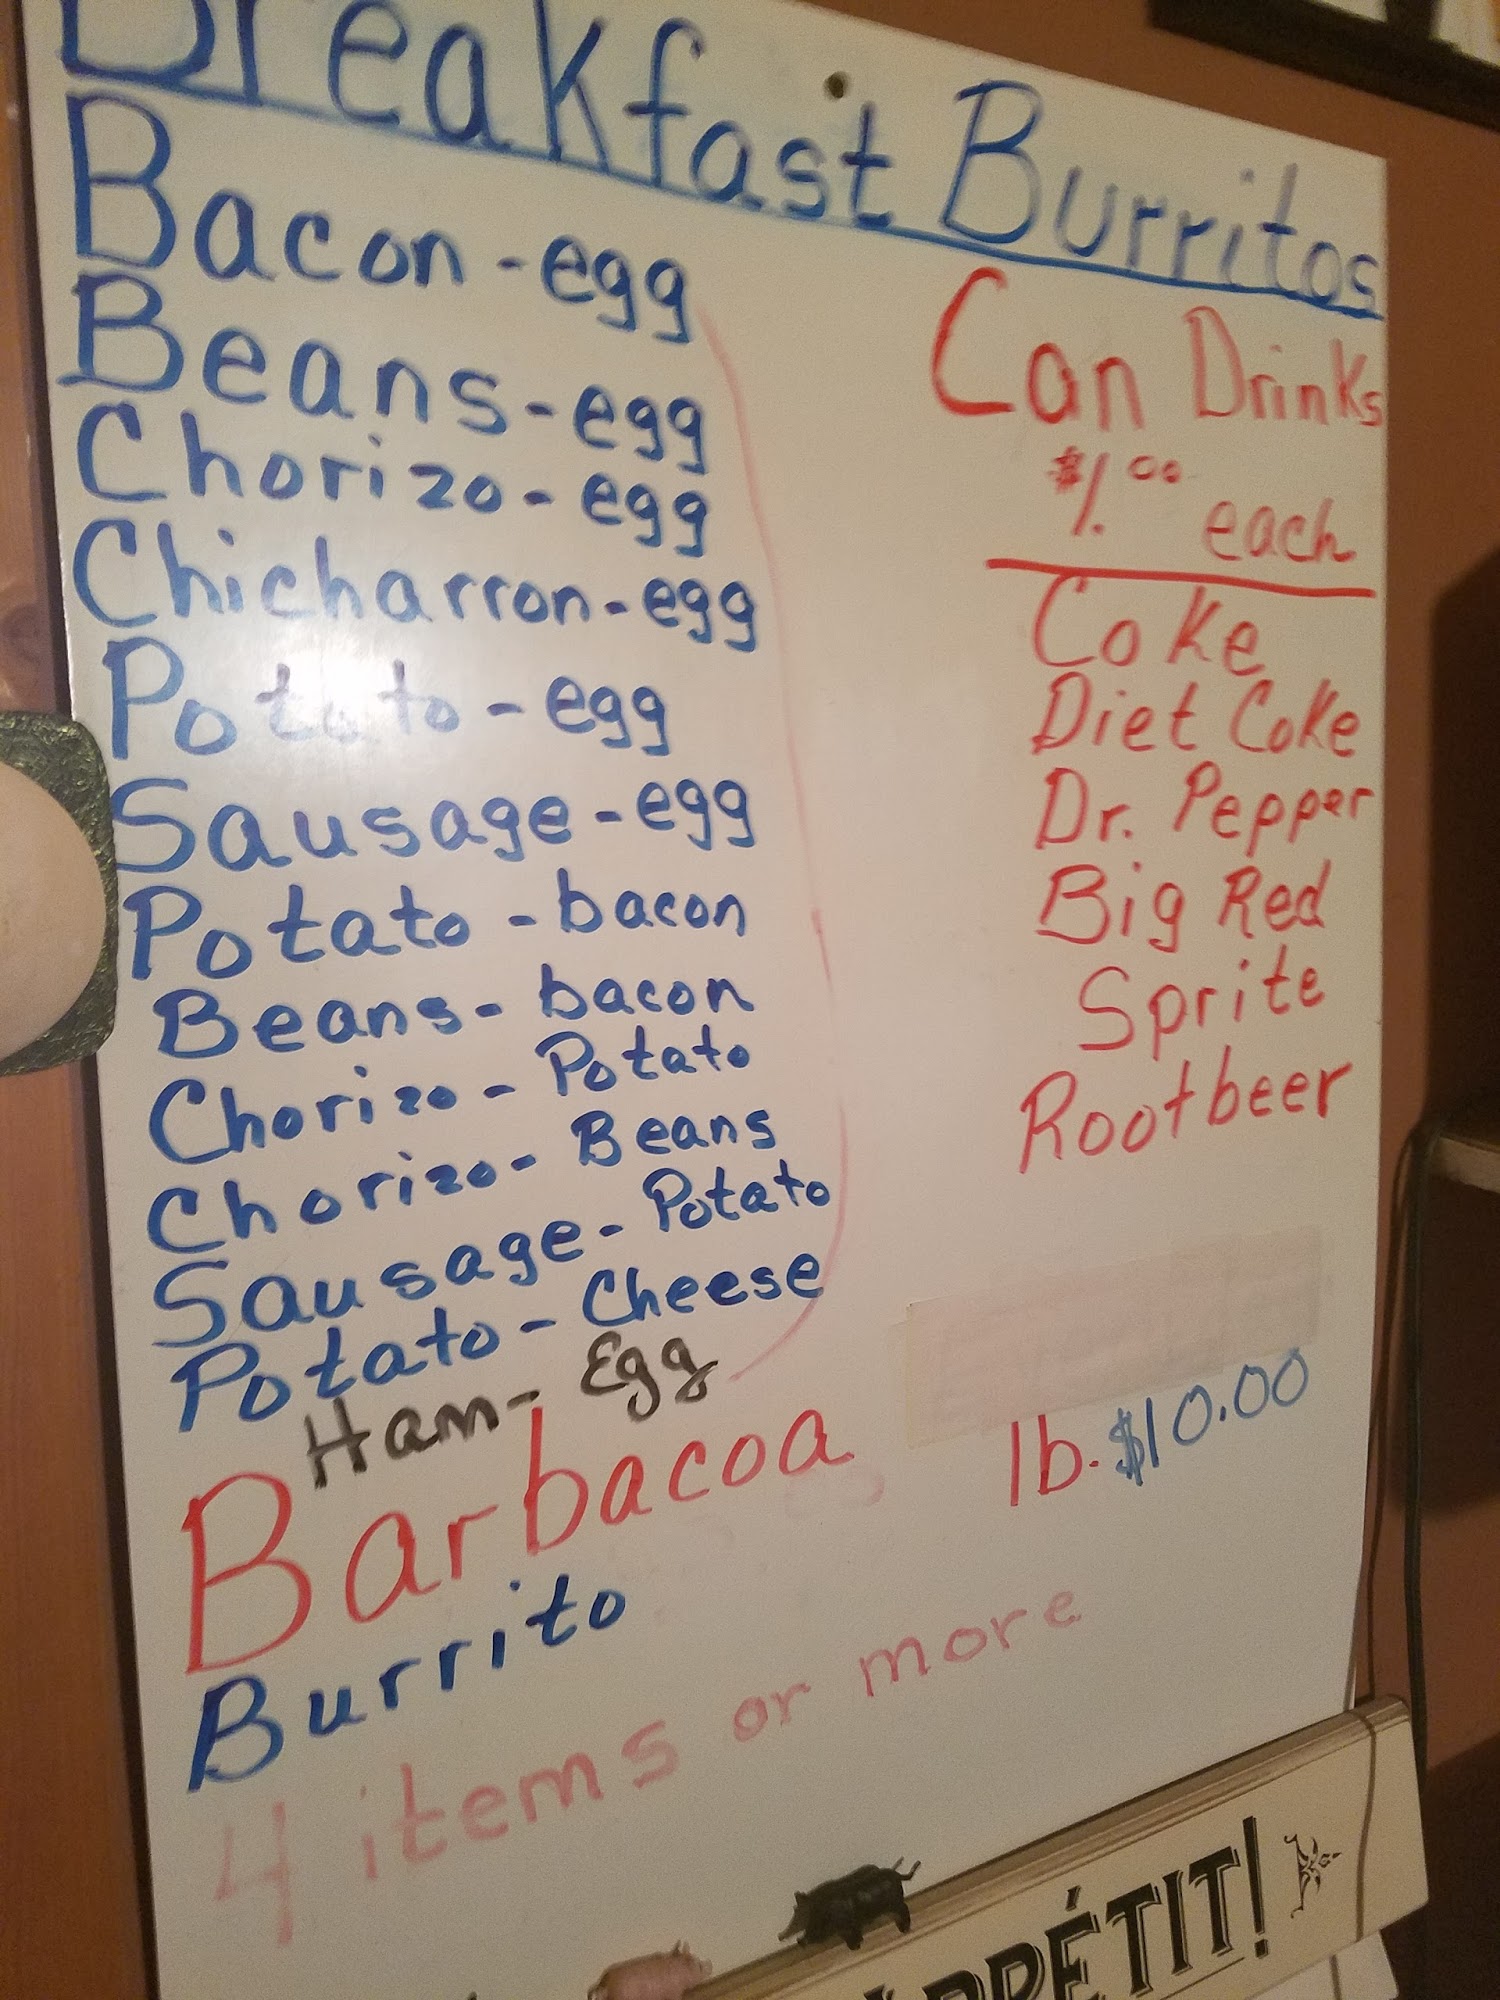 Breakfast Burritos
Bacon - egg
Beans - egg
Chorizo - egg
Chicharron - egg
Potato - egg
Sausage - egg
Potato - bacon
Beans - bacon
Chorizo - Potato
Chorizo - Beans
Sausage - Potato
Potato - Cheese
Ham - Egg
Barbacoa lb. $10.00
Burrito
4 items or more
Can Drinks
$1.00 each
Coke
Diet Coke
Dr. Pepper
Big Red
Sprite
Rootbeer
PPÉTIT!